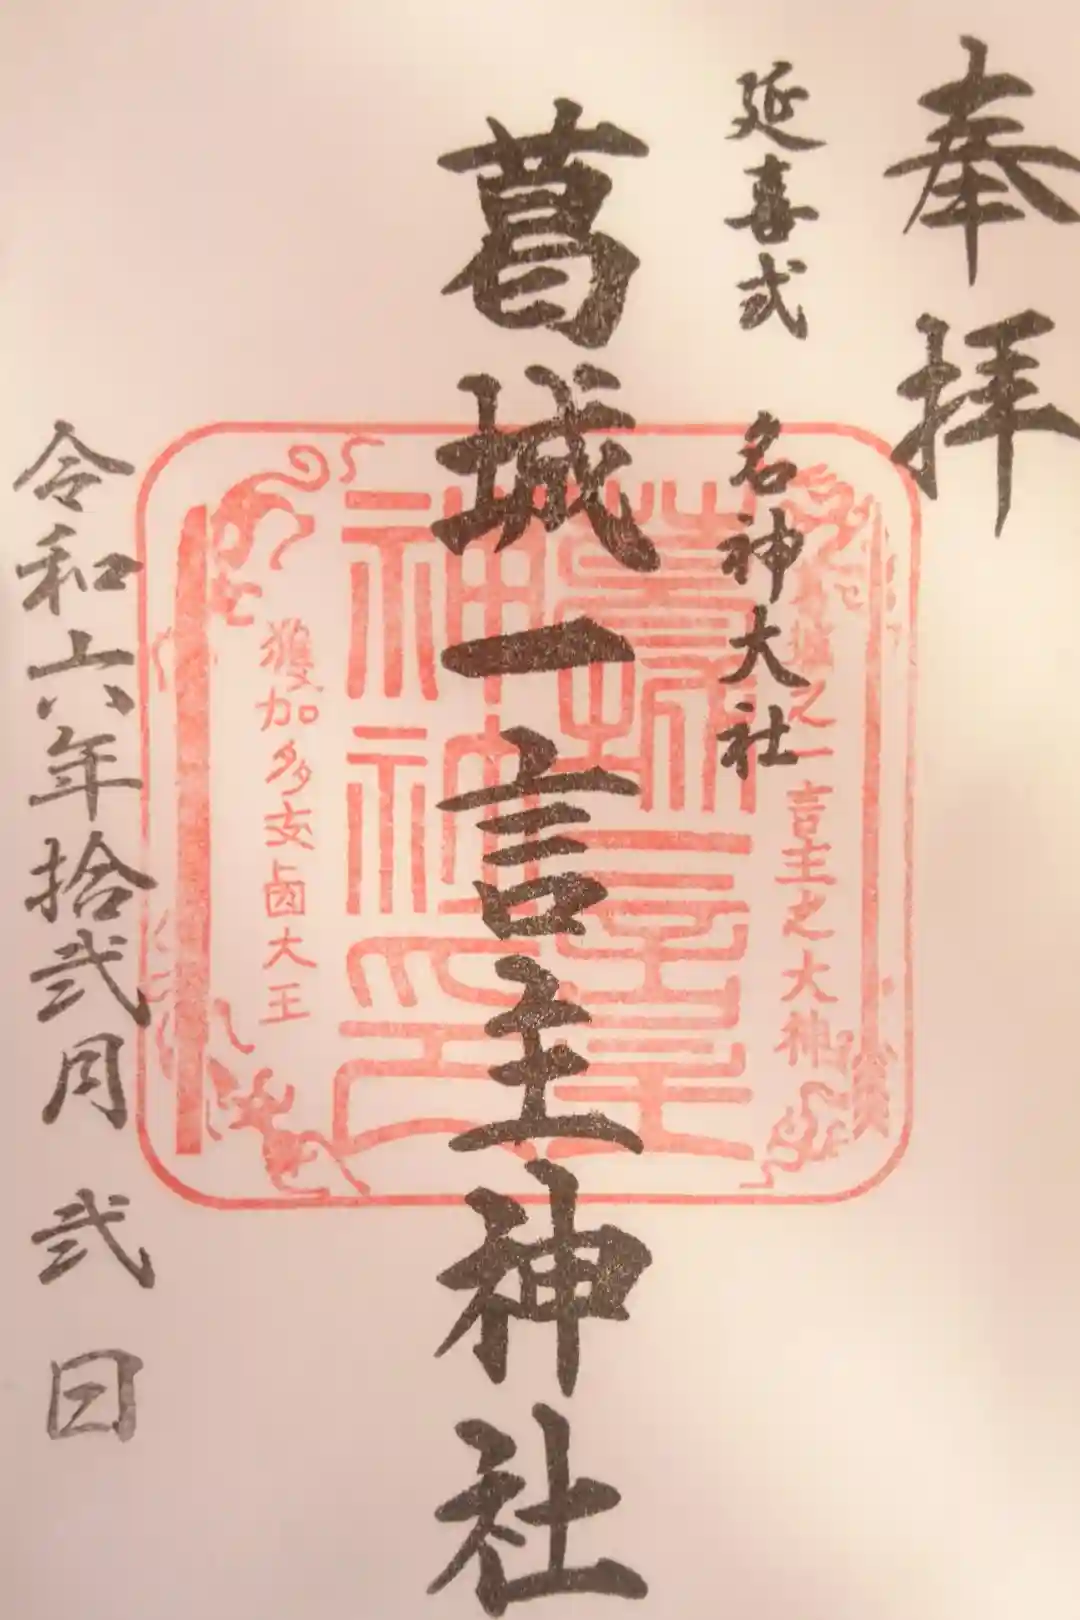 奉拝
延喜式 名神大社
葛城一言主神社
令和六年拾弐月 弐日
葛城之一言主之大神
獲加多支鹵大王
葛城一言主
神社印